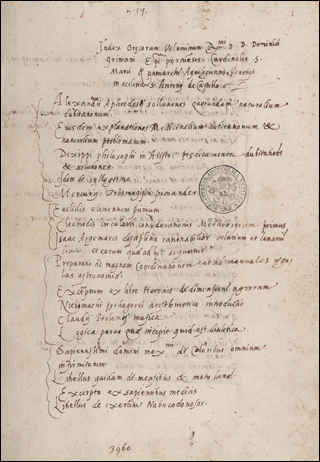 Index Grecorum Voluminum R.mi D. D. Dominici
grimani Epi portuensis Cardinalis S.
Marci & patriarchi Aquilegiensis Veneti
in ecclesia S. Antonij de Castello
Alexandri Aphrodisei solutiones quorundam naturalium
dubitationum.
Eiusdem explanationes Medicinalium dubitationum &
naturalium problematum.
Dexippi philosophi in Aristo. predicamenta dubitationes
& solutiones
Idem de syllogismis
Mercurij Trismegisti pimander
Euclidis elementorum primum
Cleomedis circularis considerationis Metheororum primus
Isaac Argenaris disciplina rationabilior solarium et lunarium
et eorum quae adhuc sequuntur
Preparatio magnam coordinationem manuales regu
las astronomicas
Exceptum ex libro Heronis de dimensione agrorum
Nicomachi pythagorei arithmetica introductio
Claudij Ptolomei musica
Logica parva quae incipit quid est dialetica
Sapientissimi domini de Coloribus omnium
infirmitatum
Libellus quidam de mensibus & motu lunae
Excerpta ex sapientibus medicis
Libellus de exercitu Nabucodonosor.
3960